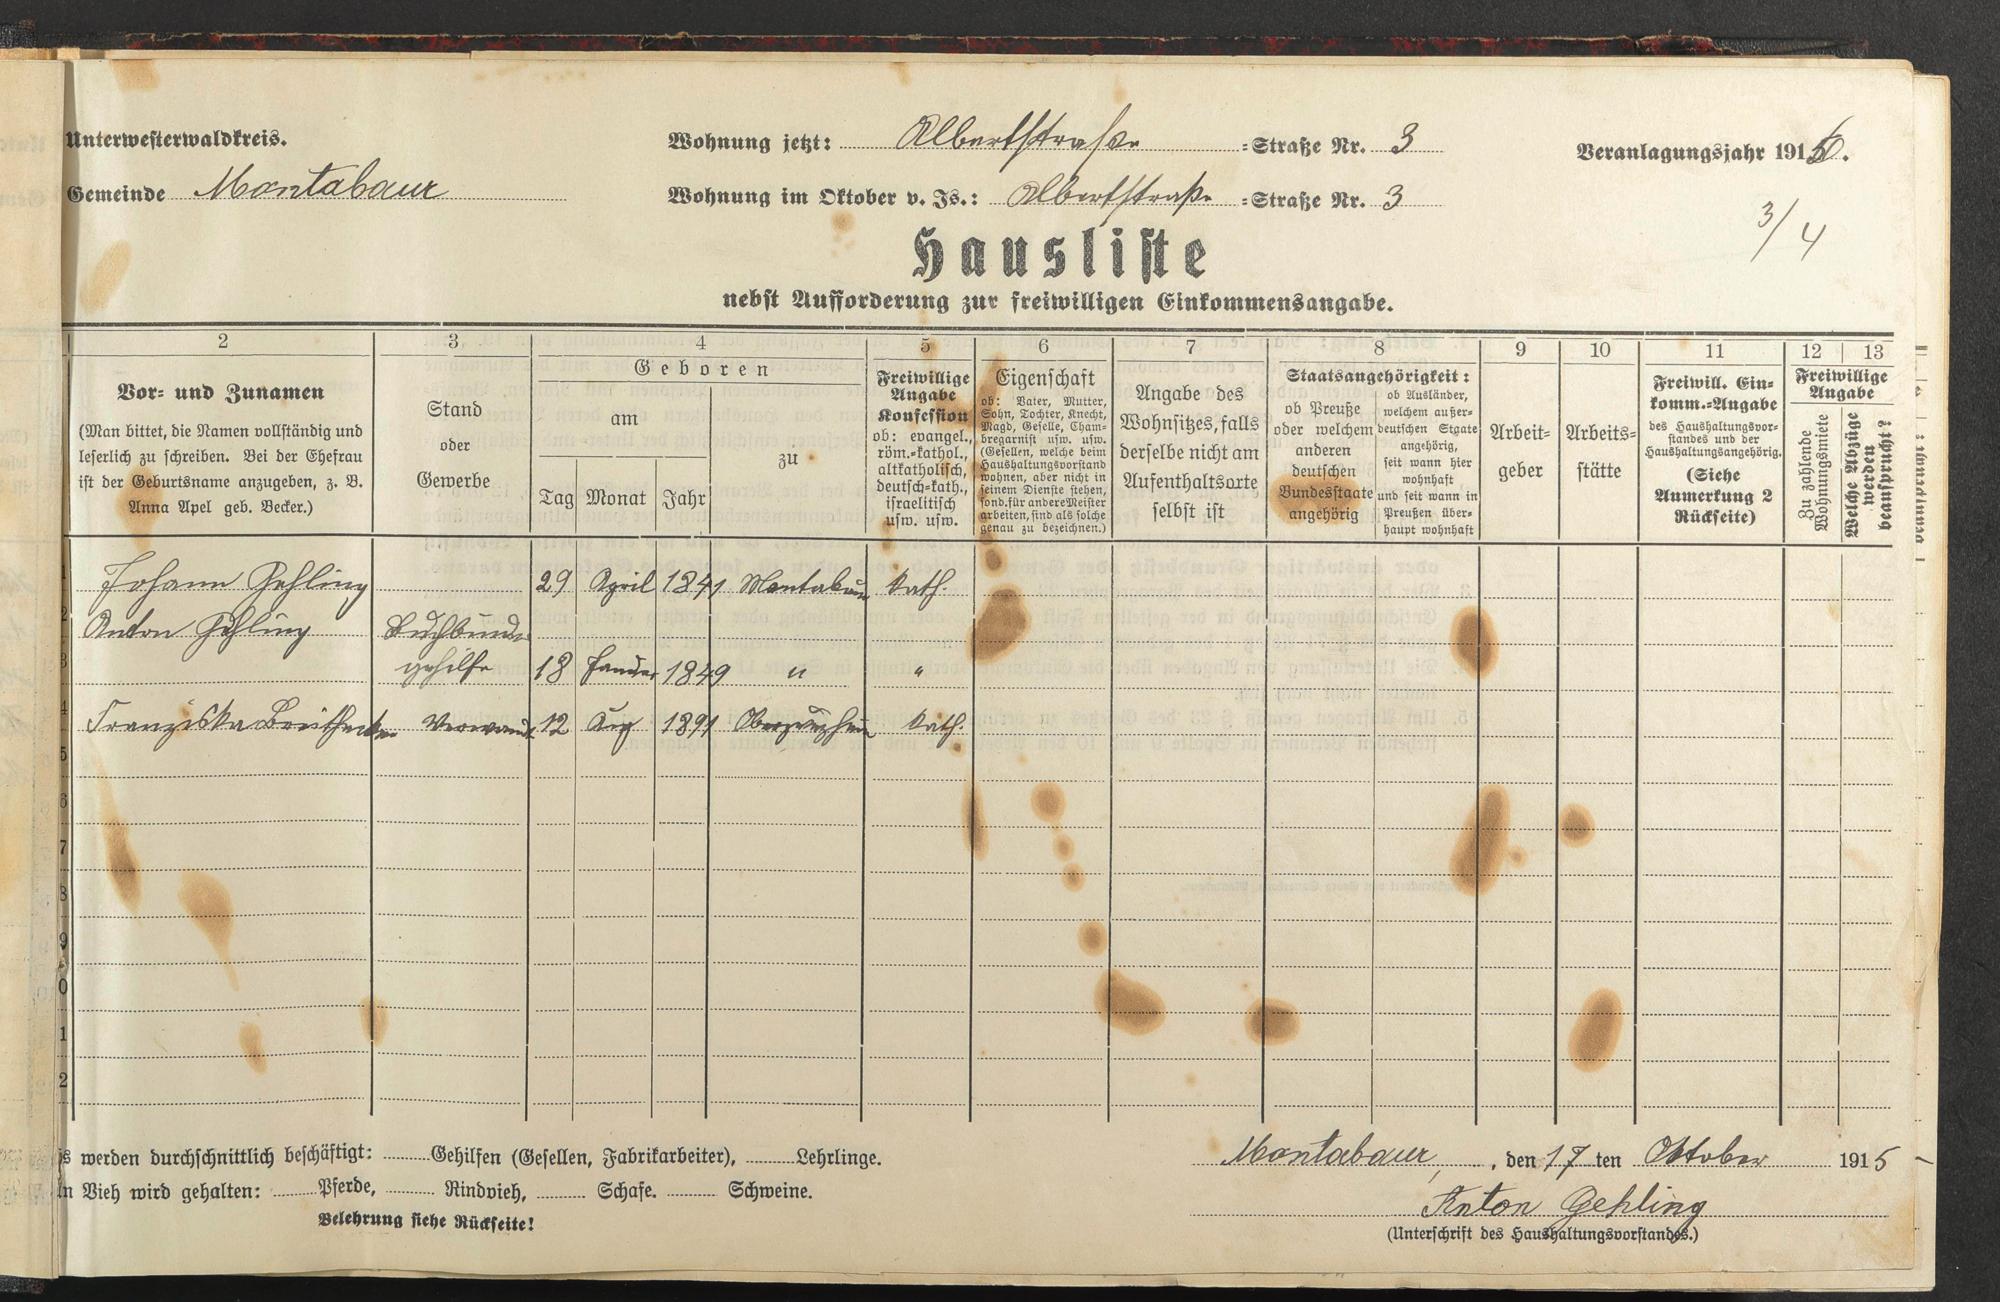 Unterwesterwaldkreis.
Gemeinde Montabaur
Wohnung jetzt: Albertstraße -Straße Nr. 3
Wohnung im Oktober v. Js.: Albertstraße -Straße Nr. 3
Veranlagungsjahr 1916.
3/4
Hausliste
nebst Aufforderung zur freiwilligen Einkommensangabe.
2 3 4 5 6 7 8 9 10 11 12 13
Vor- und Zunamen
(Man bittet, die Namen vollständig und
leserlich zu schreiben. Bei der Ehefrau
ist der Geburtsname anzugeben, z. B.
Anna Apel geb. Becker.)
Stand
oder
Gewerbe
Geboren
am
zu
Tag Monat Jahr
Freiwillige
Angabe
Konfession
ob: evangel.,
röm.-kathol.,
altkatholisch,
deutsch-kath.,
israelitisch
usw. usw.
Eigenschaft
ob: Vater, Mutter,
Sohn, Tochter, Knecht,
Magd, Geselle, Cham-
bregarnist usw. usw.
(Gesellen, welche beim
Haushaltungsvorstand
wohnen, aber nicht in
seinem Dienste stehen,
sond. für andere Meister
arbeiten, sind als solche
genau zu bezeichnen.)
Angabe des
Wohnsitzes, falls
derselbe nicht am
Aufenthaltsorte
selbst ist
Staatsangehörigkeit:
ob Preuße
oder welchem
anderen
deutschen
Bundesstaate
angehörig
ob Ausländer,
welchem außer-
deutschen Staate
angehörig,
seit wann hier
wohnhaft
und seit wann in
Preußen über-
haupt wohnhaft
Arbeit-
geber
Arbeits-
stätte
Freiwill. Ein-
komm.-Angabe
des Haushaltungsvor-
standes und der
Haushaltungsangehörig.
(Siehe
Anmerkung 2
Rückseite)
Freiwillige
Angabe
Zu zahlende
Wohnungsmiete
Welche Abzüge
werden
beansprucht?
1 Johann Gehling 29 April 1841 Montabaur kath.
2 Anton Gehling Buchbinder
3 gehilfe 18 Januar 1849 " "
4 Franziska Verwandte 12 Aug 1891 kath.
5
6
7
8
9
0
1
2
s werden durchschnittlich beschäftigt: Gehilfen (Gesellen, Fabrikarbeiter), Lehrlinge.
n Vieh wird gehalten: Pferde, Rindvieh, Schafe. Schweine.
Belehrung siehe Rückseite!
Montabaur, , den 17 ten Oktober 1915
Anton Gehling
(Unterschrift des Haushaltungsvorstandes.)